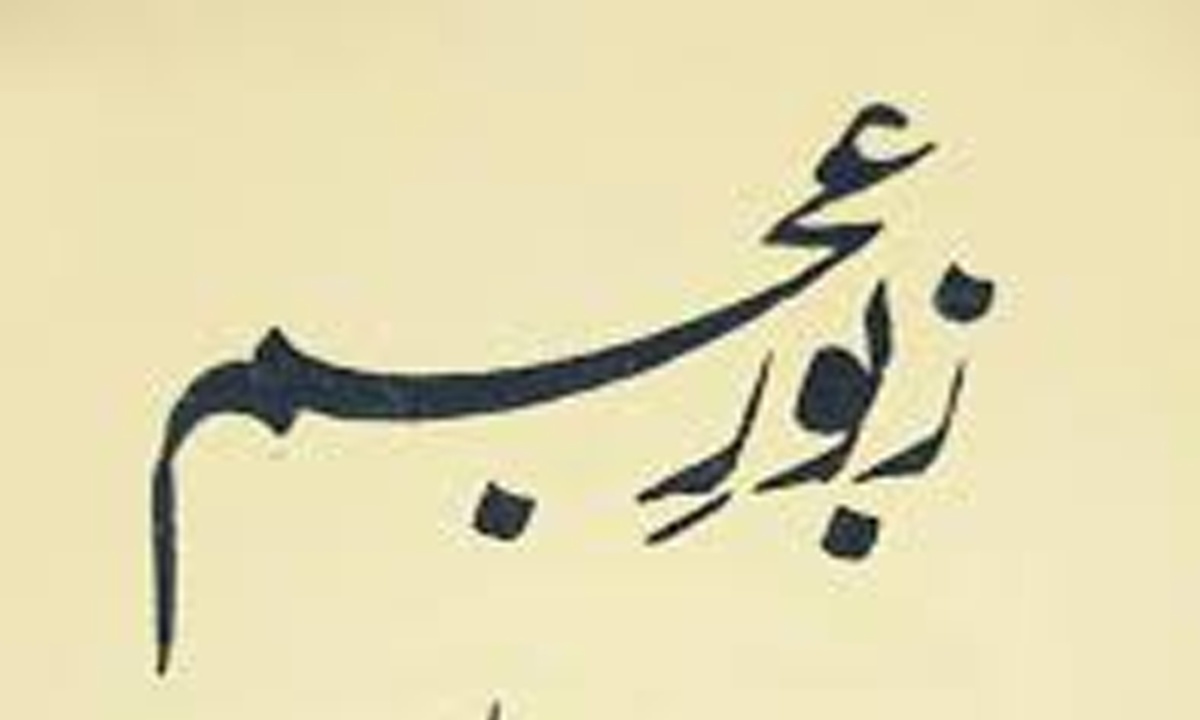 زبورِ عجم